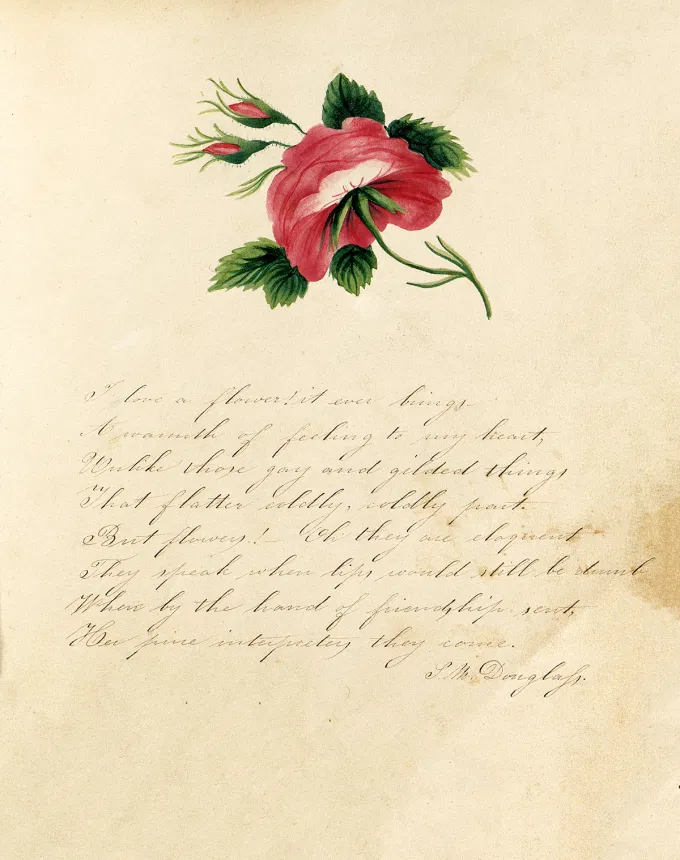 I love a flower! it ever brings
A warmth of feeling to my heart,
Unlike those gay and gilded things
That flatter coldly, coldly part.
But flowers!— Oh they are eloquent
They speak when lips would still be dumb
When by the hand of friendship sent,
Her pure interpreters they come.
S. M. Douglass.